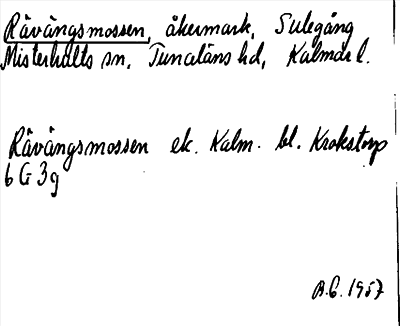 Råvängsmossen, åkermark, Sulegång
Misterhults sn, Tunaläns hd, Kalmar l.
Råvängsmossen ek. Kalm. bl. Krokstorp
6 G 3g
B.G. 1957